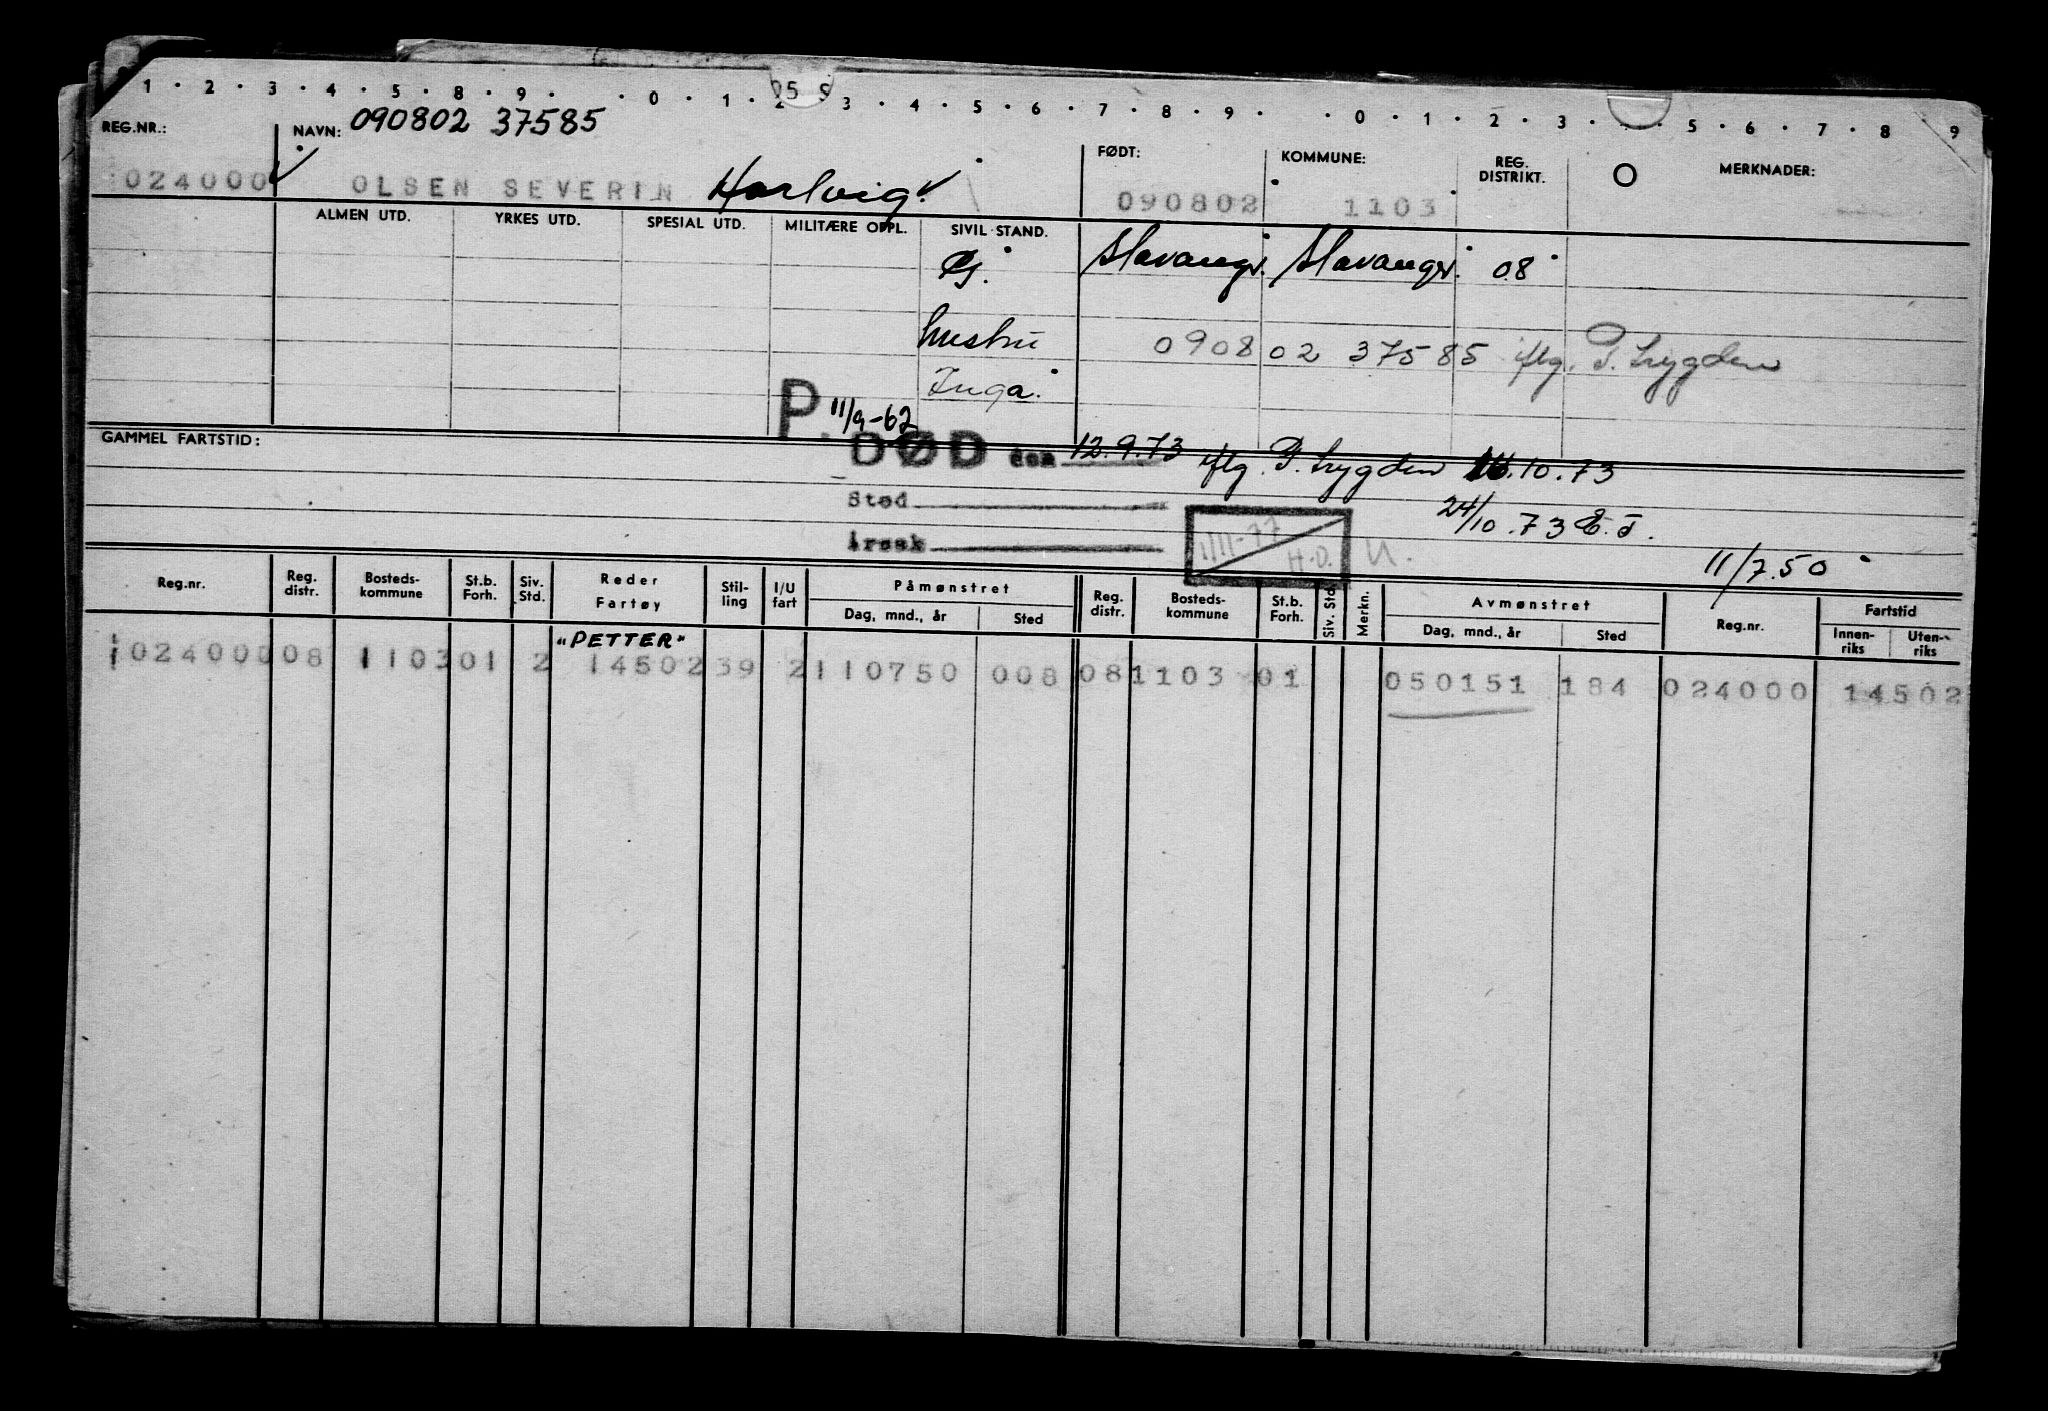 1 · 2 · 3 · 4 · 5 · 8 · 9 · · 0 · 1 · 2 25 S 3 · 4 · 5 · 6 · 7 · 8 · 9 · · 0 · 1 · 2 · 3 · 5 · 6 · 7 · 8 · 9
REG.NR.: NAVN: 090802 37585 FØDT: KOMMUNE: REG. DISTRIKT. O MERKNADER:
024000 OLSEN SEVERIN Hartvig 090802 1103
ALMEN UTD. YRKES UTD. SPESIAL UTD. MILITÆRE OPPL. SIVIL STAND.
g. Stavanger. Stavanger. 08
hustru 090802 37585 iflg. P. Trygden
Inga.
P. 11/9-62
GAMMEL FARTSTID: DØD den 12.9.73 iflg. P. Trygden 16.10.73
Sted 24/10.73 E.T.
Årsak 1/11-77 H.O. U. 11/7.50
Reg.nr. Reg. distr. Bosteds-kommune St.b. Forh. Siv. Std. Reder Fartøy Stil-ling I/U fart Påmønstret Reg. distr. Bosteds-kommune St.b. Forh. Siv. Std. Merkn. Avmønstret Reg.nr. Fartstid
Dag, mnd., år Sted Dag, mnd., år Sted Innen-riks Uten-riks
"PETTER"
024000 08 1103 01 2 14502 39 2 110750 008 08 1103 01 050151 184 024000 14502